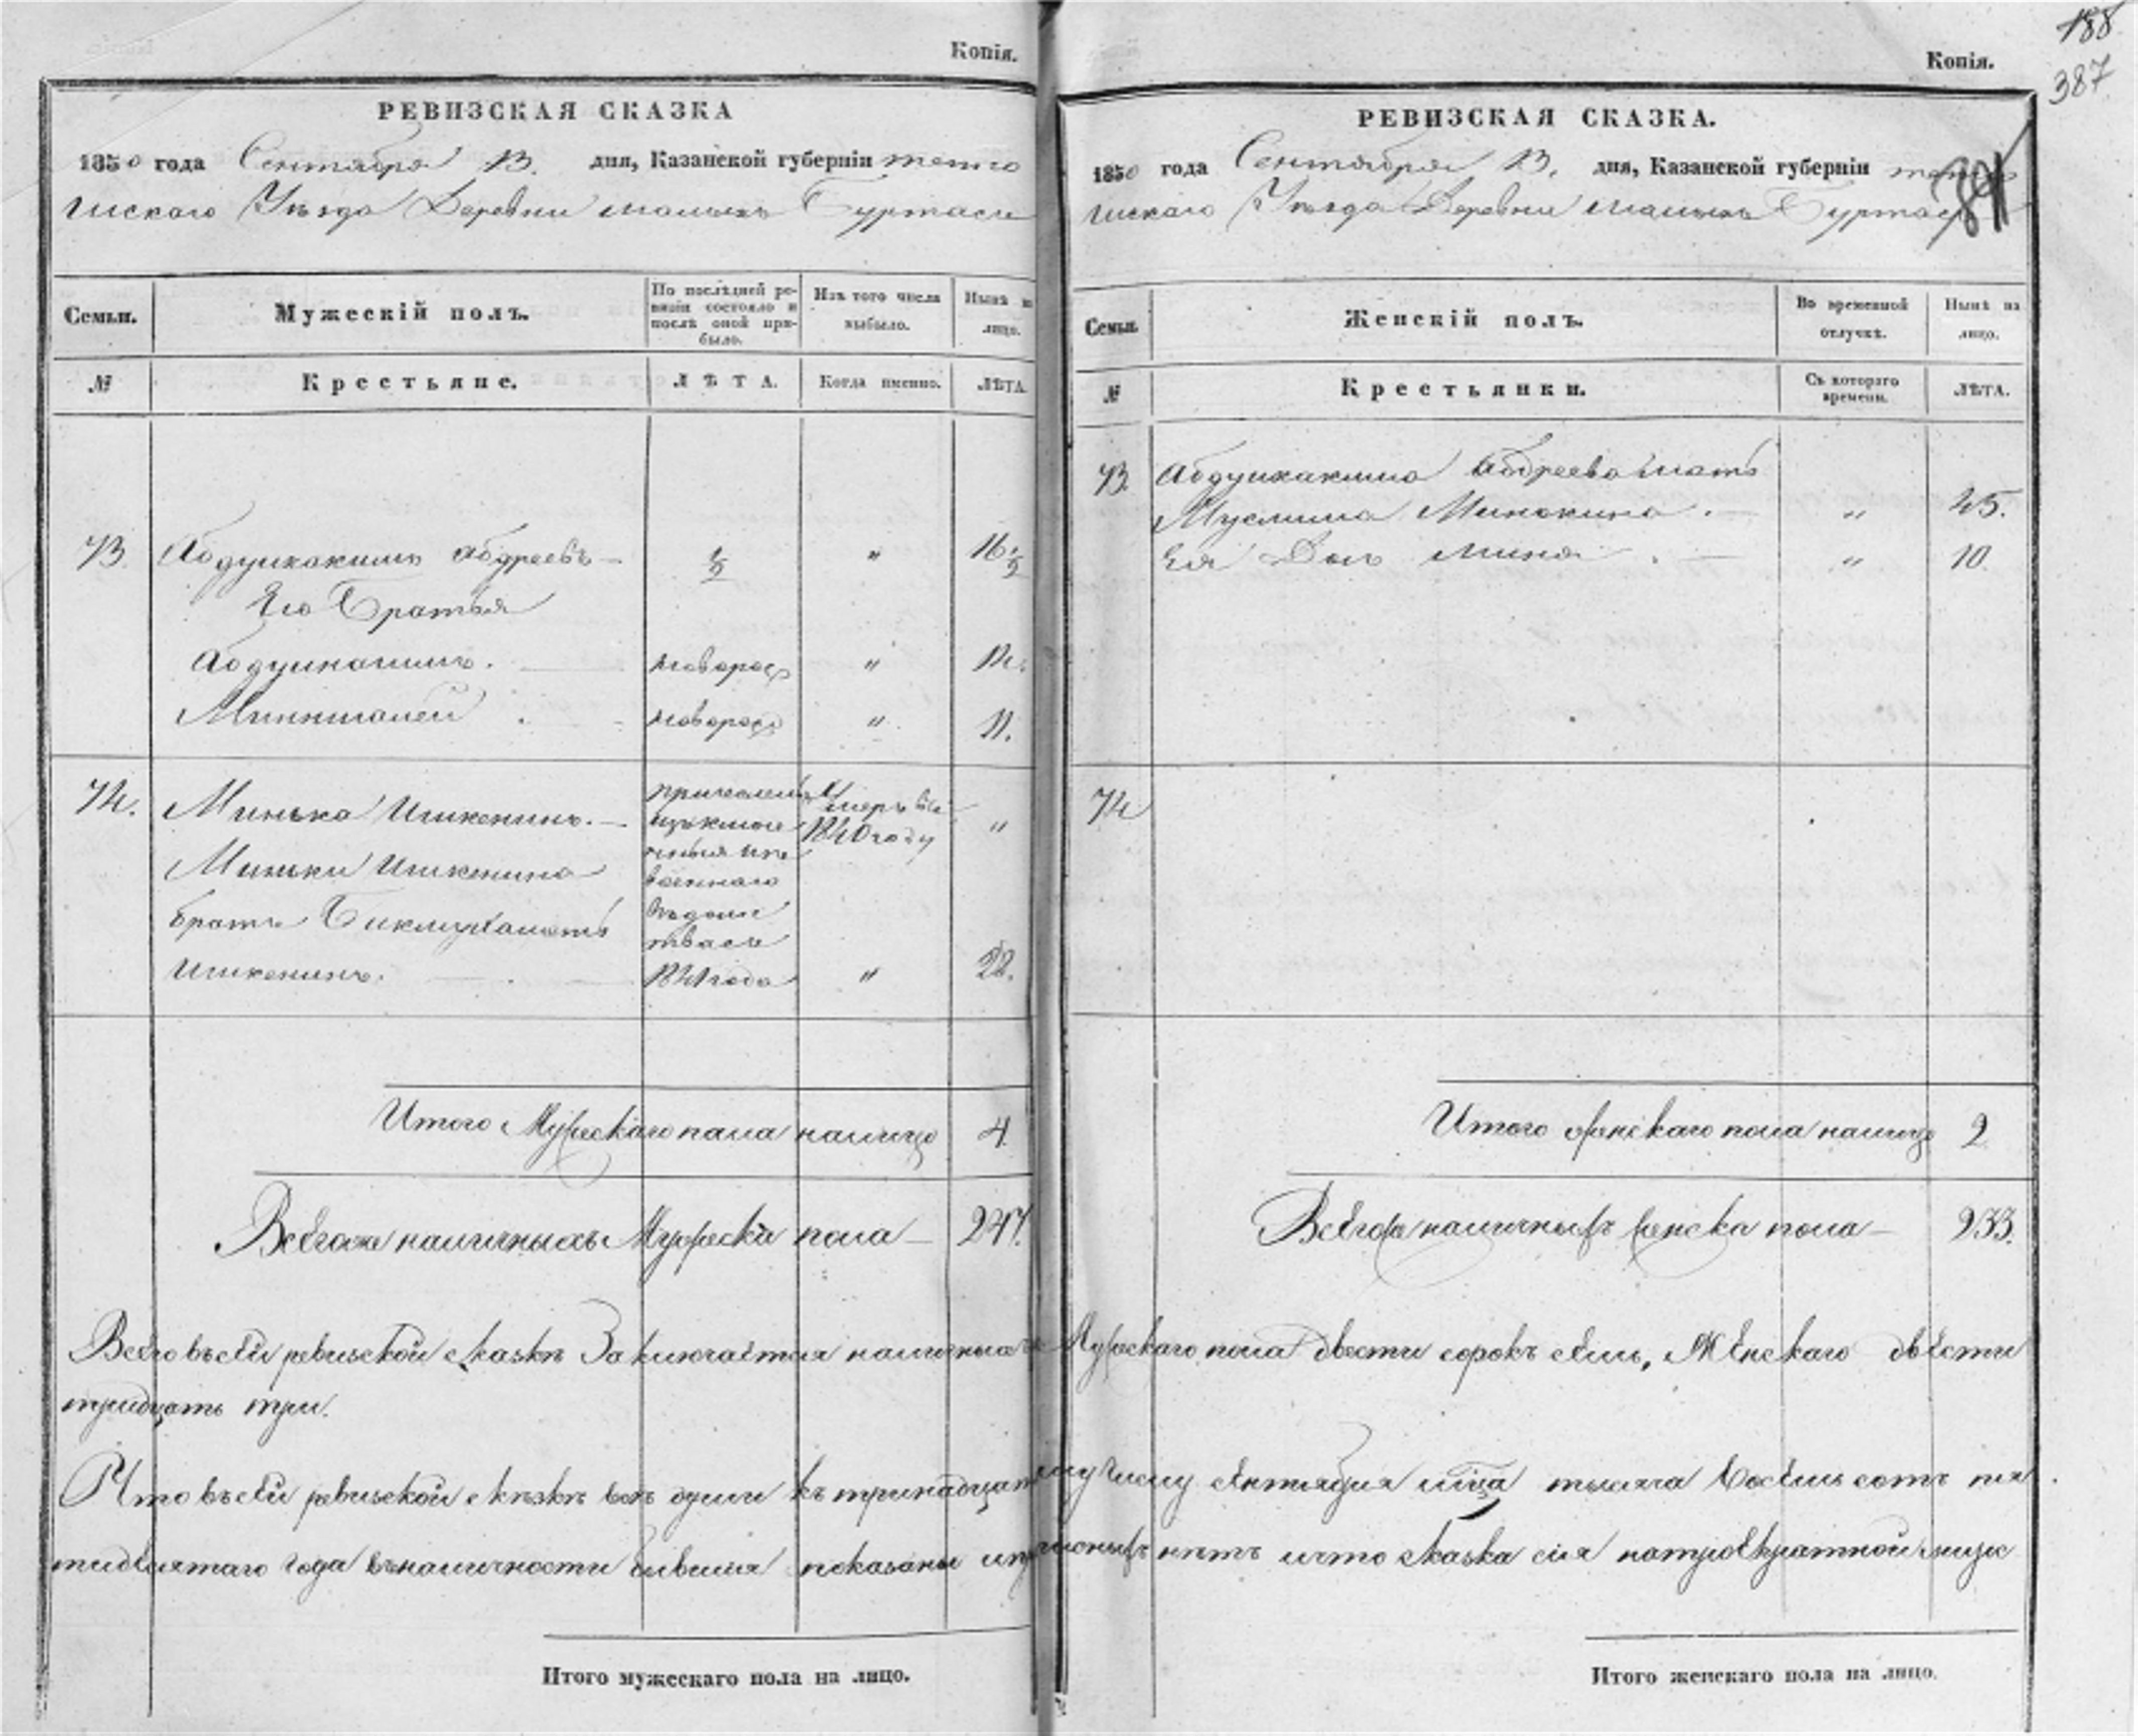 Копія.
РЕВИЗСКАЯ СКАЗКА
1850 года Сентября 13. дня, Казанской губерніи тетю
шскаго Уѣзда Деревни малыхъ Буртасъ
Семьи.
Мужескій полъ.
По послѣдней ре-
визіи состояло и
послѣ оной при-
было.
Изъ того числа
выбыло.
Нынѣ на
лицо.
№
Крестьяне.
ЛѢТА.
Когда именно.
ЛѢТА.
73. Абдулхакимъ Абдреевъ — " 16
Его Братья
новорож " 12.
новорож " 11.
74. Минька Ишкенинъ. — Умеръ въ
1840 году "
Миньки Ишкенина
военнаго
братъ Бикмухаметъ
вѣдомс
тва съ
Ишкенинъ. 1841 года " 28.
Итого Мужескаго пола налицо 4
Всегоже наличныхъ Мужеска пола — 247.
Копія.
188
387
РЕВИЗСКАЯ СКАЗКА.
1850 года Сентября 13. дня, Казанской губерніи тетю
шскаго Уѣзда Деревни малыхъ Буртасъ
Семьи.
Женскій полъ.
Во временной
отлучкѣ.
Нынѣ на
лицо.
№
Крестьянки.
Съ котораго
времени.
ЛѢТА.
73. Абдулхакима Абдреева мать
Муслима Минкина. — " 45.
Ея Дочь — " 10.
74
Итого женскаго пола налицо 2
Всегоже наличныхъ женска пола — 233.
Всего въ сей ревизской сказкѣ Заключается наличныхъ Мужескаго пола двести сорокъ семь, Женскаго двѣсти
тридцать три.
Что въ сей ревизской сказкѣ всѣ души къ тринадцатому числу сентября мца тысяча восемь сотъ пя
тидесятаго года въ наличности бывшия показаны и прописныхъ нѣтъ и что сказка сія
Итого мужескаго пола на лицо.
Итого женскаго пола на лицо.